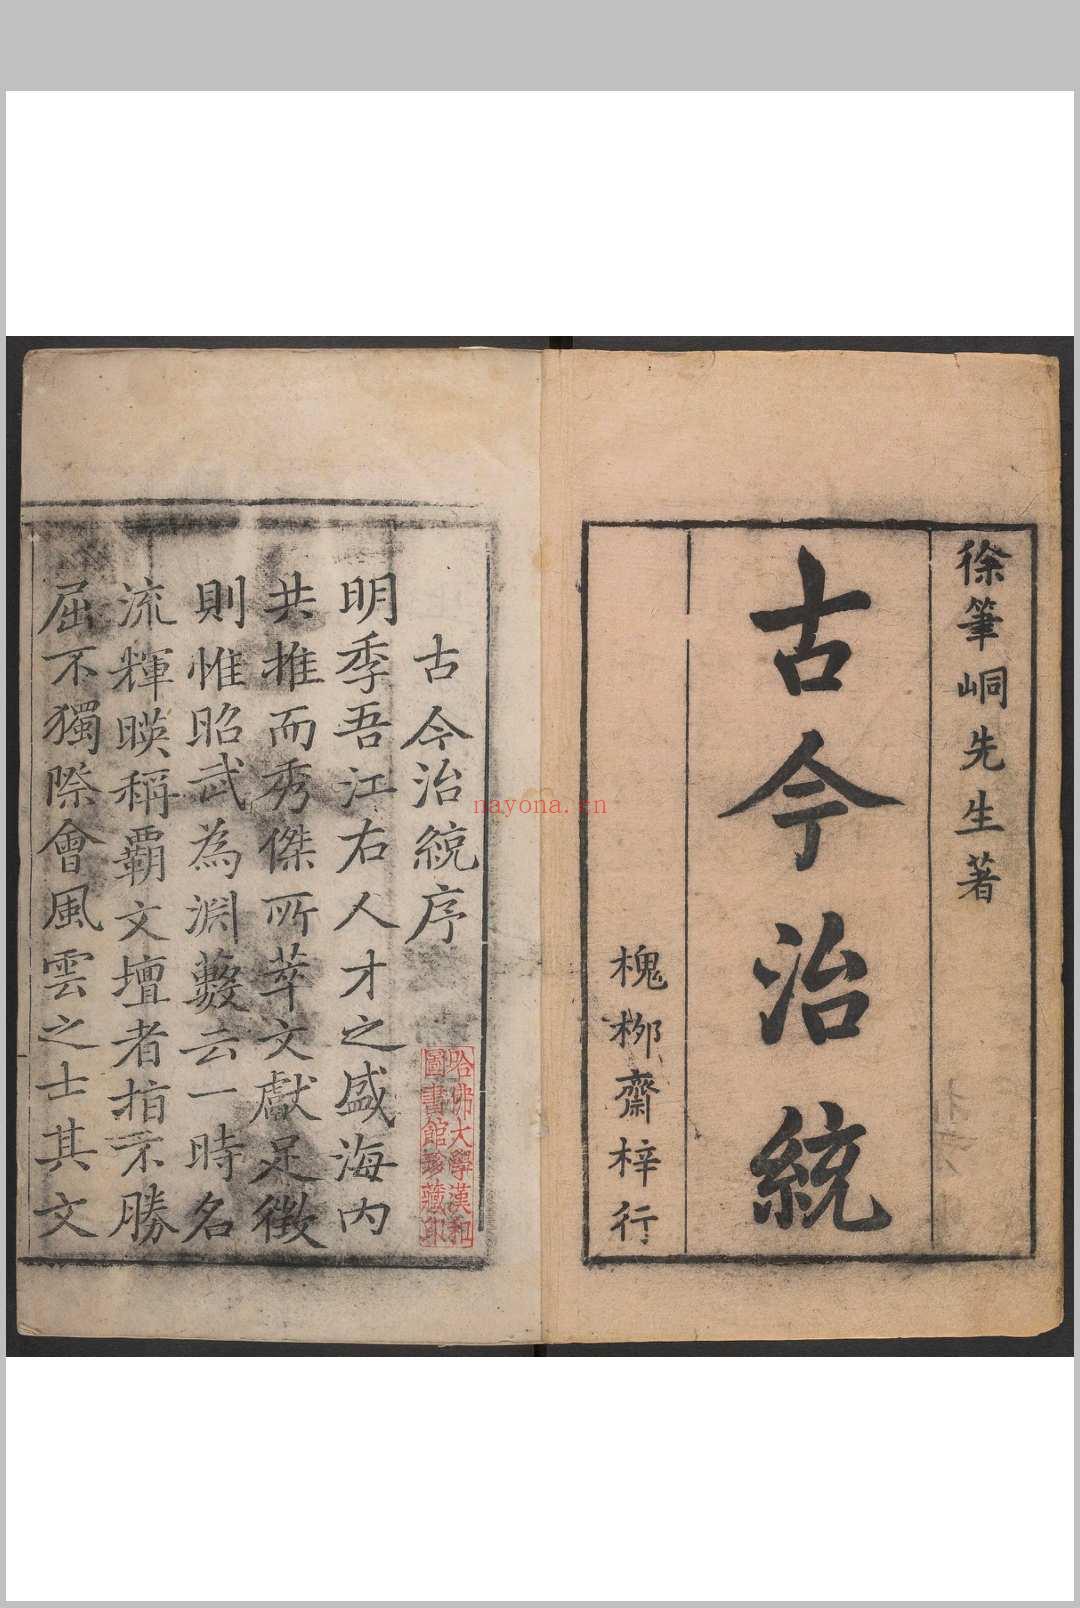 徐筆峒先生著
古今治統
槐柳齋梓行
古今治統序
哈佛大學漢和
圖書館珍藏印
明季吾江右人才之盛海内
共推而秀傑所萃文獻足徵
則惟昭武為淵藪云一時名
流輝暎稱霸文壇者指不勝
屈不獨際會風雲之士其文
nayona.cn